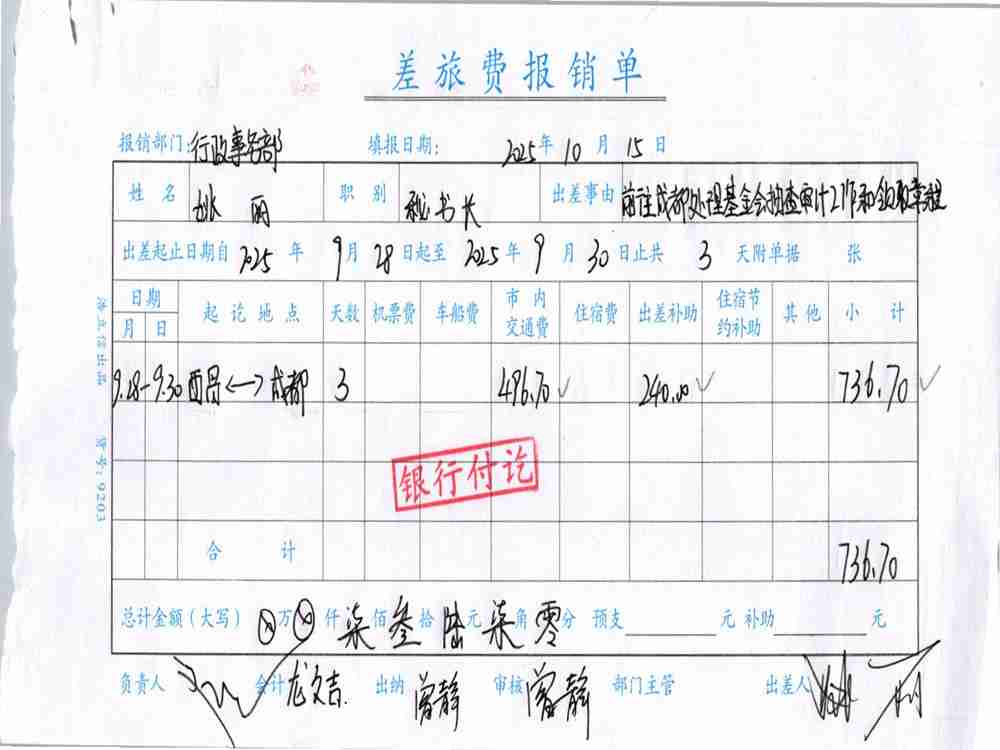 差旅费报销单
报销部门：行政事务部 填报日期： 2025年 10 月 15 日
姓 名 姚 丽 职 别 秘书长 出差事由 前往成都处理基金会抽查审计工作和领取章程
出差起止日期自 2025 年 9月 28 日起至 2025 年 9 月 30 日止共 3 天附单据 张
日期 起 讫 地 点 天数 机票费 车船费 市 内 交通费 住宿费 出差补助 住宿节 约补助 其 他 小 计
月 日
9.28-9.30 西昌<->成都 3 496.70 ✓ 240.00 ✓ 736.70 ✓
银行付讫
合 计 736.70
总计金额（大写） ⊗万⊗仟柒佰叁拾陆元柒角零分 预支 元 补助 元
负责人 会计 龙文吉 出纳 曾静 审核 曾静 部门主管 出差人
货号：9203